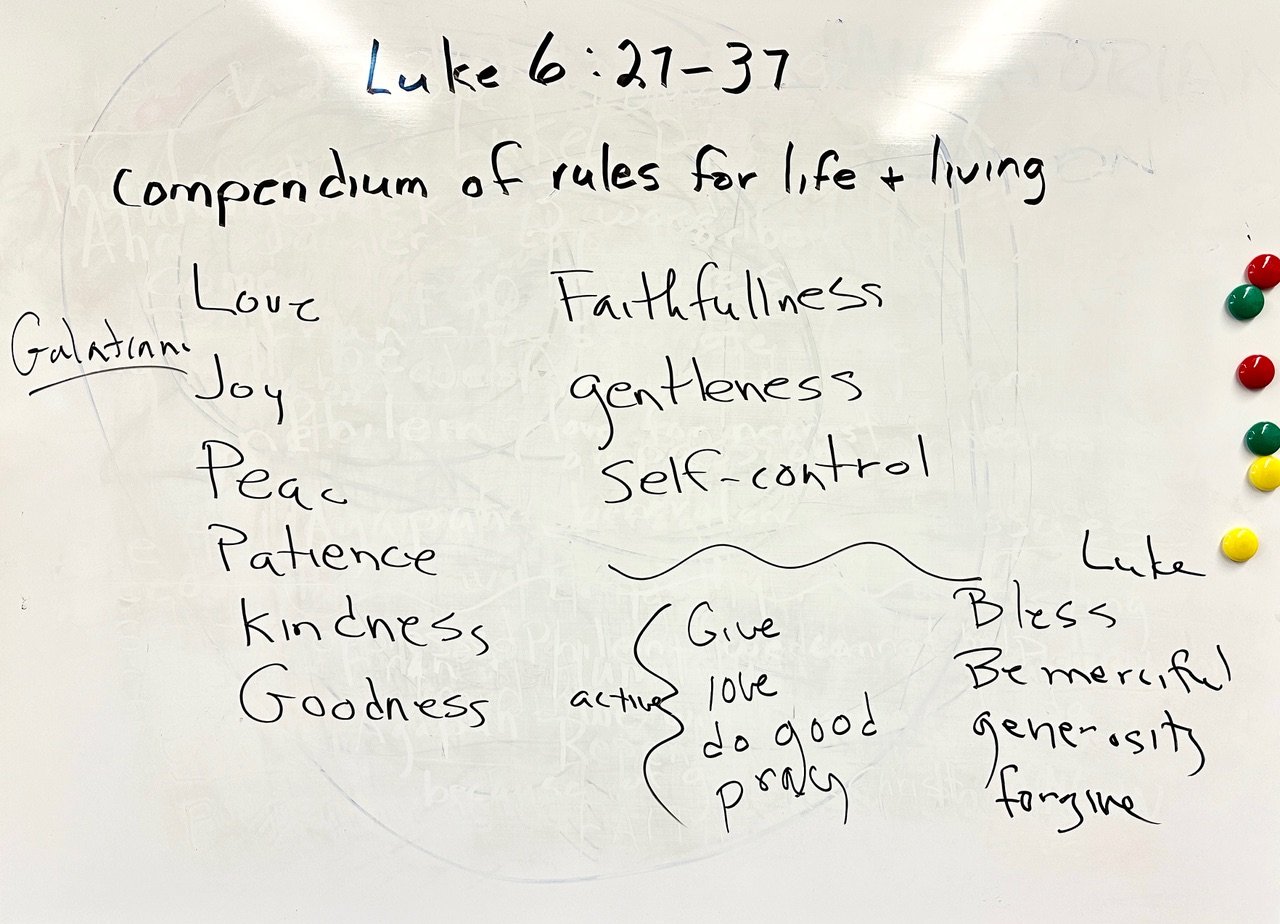 Luke 6:27-37
Compendium of rules for life + living
Galatians
Love
Joy
Peac
Patience
Kindness
Goodness
Faithfullness
gentleness
self-control
active
Give
love
do good
pray
Luke
Bless
Be merciful
generosity
forgive